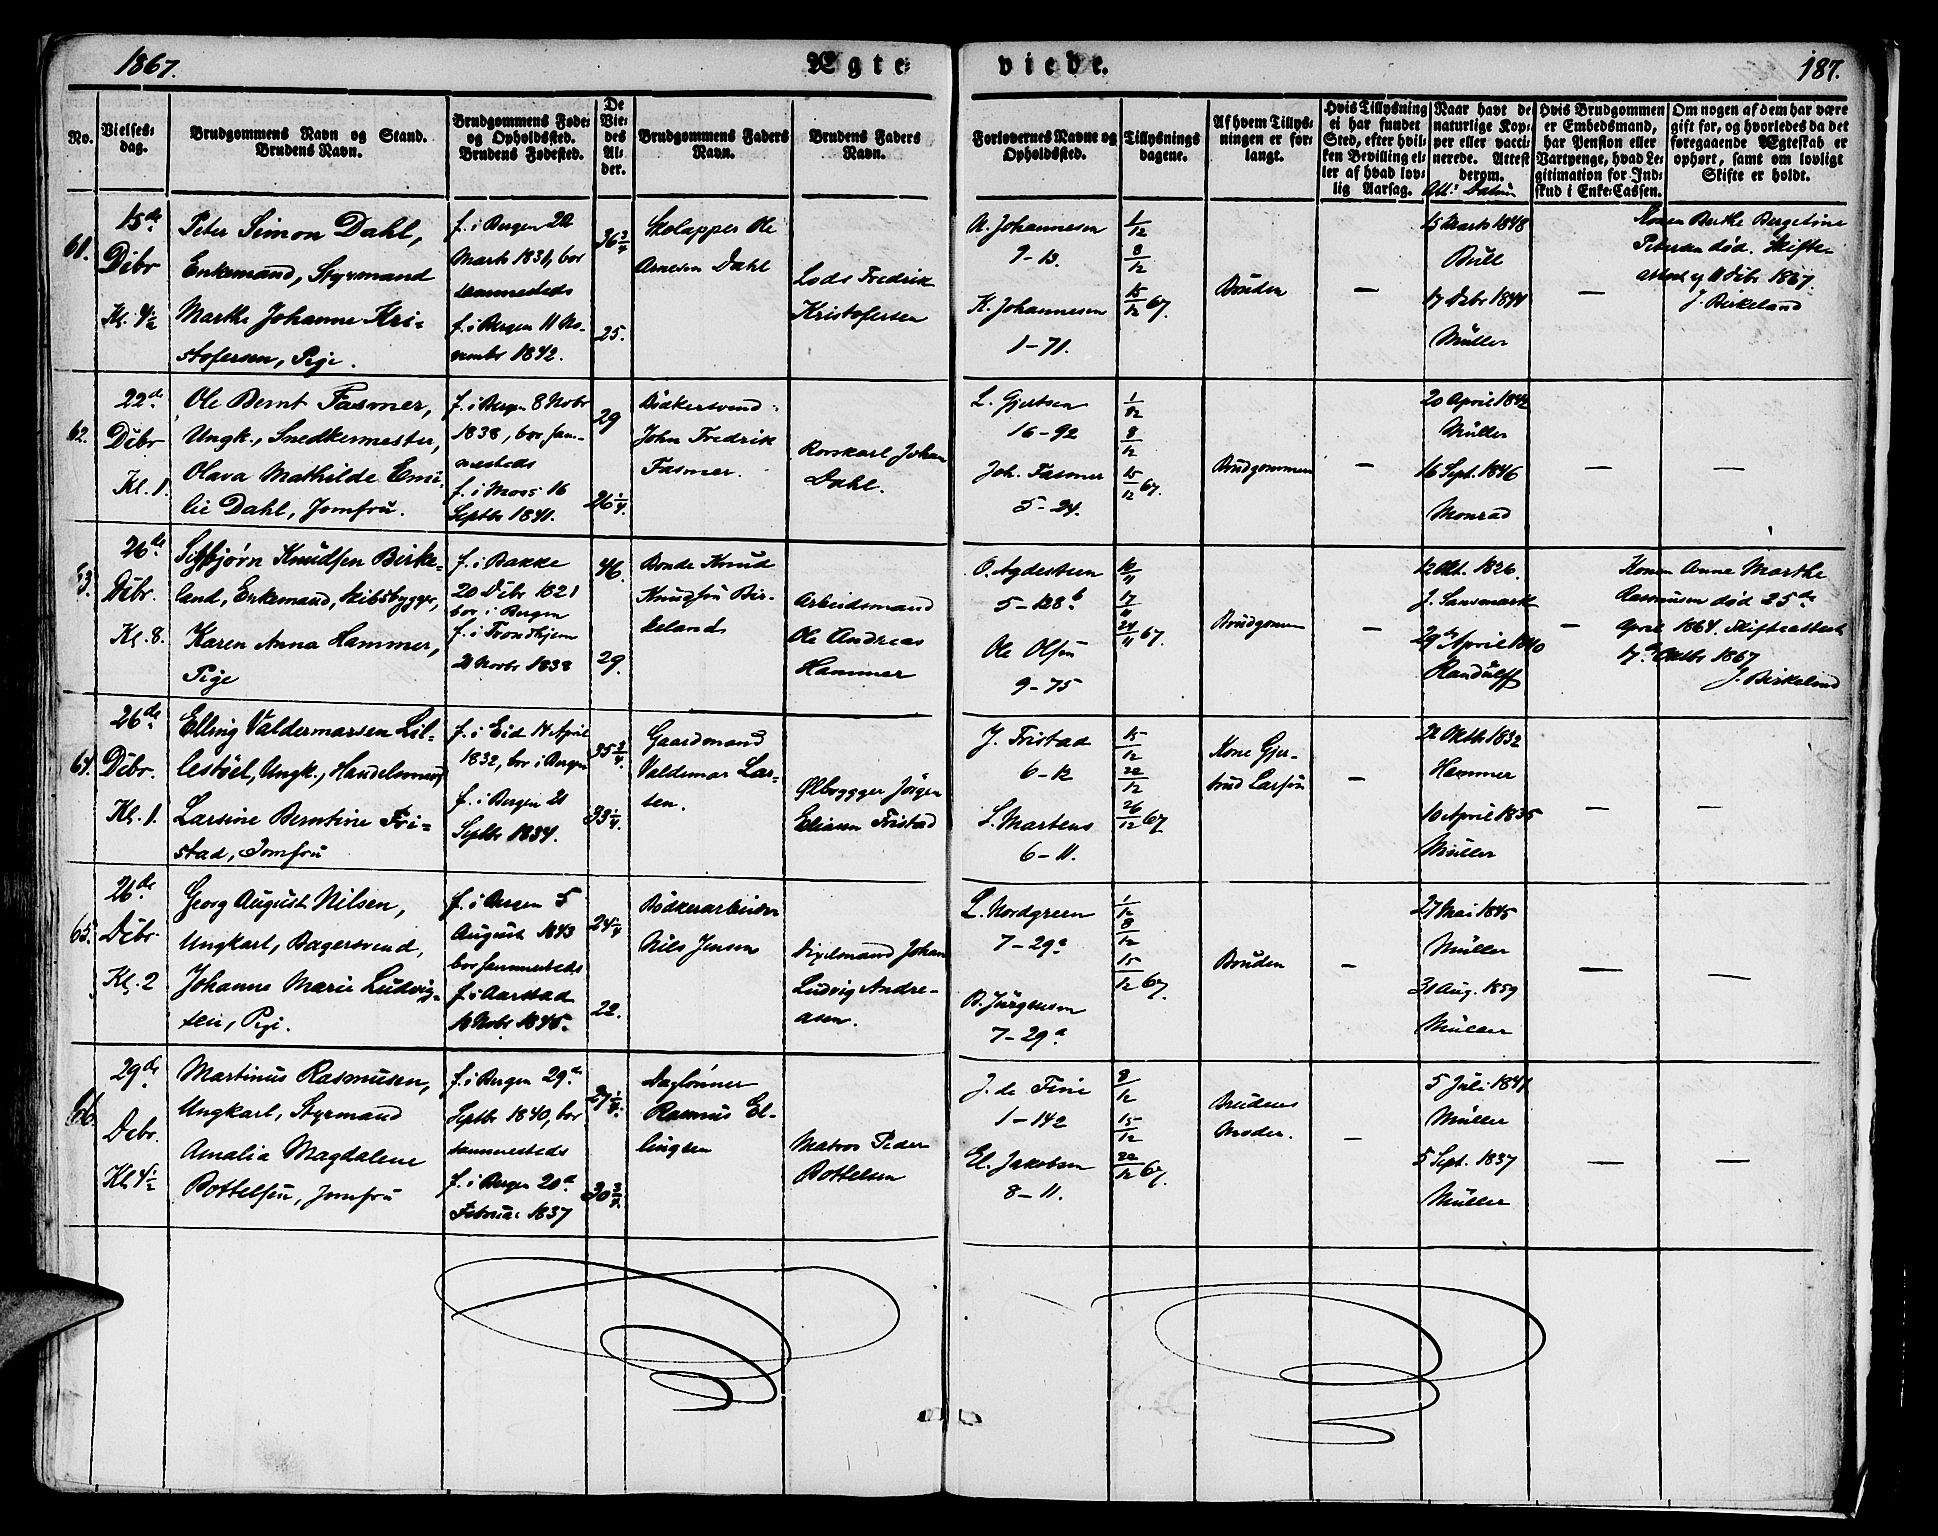 1867.
Ægte
viede.
187.
No.
Vielses-
dag.
Brudgommens Navn og Stand.
Brudens Navn.
Brudgommens Føde-
og Opholdssted.
Brudens Fødested.
De
Vie-
des
Al-
der.
Brudgommens Faders
Navn.
Brudens Faders
Navn.
Forlovernes Navne og
Opholdssted.
Tillysnings
dagene.
Af hvem Tillys-
ningen er for-
langt.
Hvis Tillysning
ei har fundet
Sted, efter hvil-
ken Bevilling el-
ler af hvad lov-
lig Aarsag.
Naar havt de
naturlige Kop-
per eller vacci-
nerede. Attest
derom.
Att: Datum
Hvis Brudgommen
er Embedsmand,
har Pension eller
Vartpenge, hvad Le-
gitimation for Ind-
skud i Enke-Cassen.
Om nogen af dem har være
gift før, og hvorledes da det
foregaaende Ægteskab er
ophørt, samt om lovligt
Skifte er holdt.
61.
15de
Debr
Kl. 4½
Peter Simon Dahl,
Enkemand, Styrmand
Marthe Johanne Kri-
stofersen, Pige.
f. i Bergen 22
Marts 1831, bor
sammesteds
f. i Bergen 11 No-
vembr 1842.
36 3/4
25.
Skolapper Ole
Arnesen Dahl
Lods Fredrik
Kristofersen
N. Johannesen
9-13.
K. Johannesen
1-71.
1/12
8/12
15/12 67.
Bruden
—
15 Marts 1848
Bull
17 Debr 1844
Müller
—
Konen Berthe Bergetine
Petersen død. Skifte-
attest af 11 Debr 1867.
J. Birkeland
62.
22de
Debr
Kl. 1.
Ole Bernt Fasmer,
Ungk., Snedkermester,
Olava Mathilde Emi-
lie Dahl, Jomfru.
f. i Bergen 8 Novbr
1838, bor sam-
mesteds
f. i Moss 16
Septbr 1841.
29
26 1/4.
Bødkersvend
John Fredrik
Fasmer.
Rorskarl Johan
Dahl.
L. Gjertsen
16-92
Joh. Fasmer
5-24.
1/12
8/12
15/12 67.
Brudgommen
—
20 April 1842
Müller
16 Sept. 1846
Monrad
—
—
63.
26de
Debr.
Kl. 8.
Sigbjørn Knudsen Birke-
land, Enkemand, Skibsbygger,
Karen Anna Hammer,
Pige
f. i Bakke
20 Debr 1821
bor i Bergen
f. i Trondhjem
21 Novbr 1838
46.
29.
Bonde Knud
Knudsen Bir-
keland
Arbeidsmand
Ole Andreas
Hammer
O. Agdesteen
5-128b
Ole Olsen
9-75
10/11
17/11
24/11 67.
Brudgommen
—
12 Okt. 1826.
J. Sansmark
29de April 1840
Randulff
—
Konen Anne Marthe
Rasmusen død 25de
April 1864. Skifteattest
17de Oktbr 1867
J. Birkeland
64.
26de
Debr.
Kl. 1.
Elling Valdemarsen Lil-
lestøel, Ungk., Handelsmand
Larsine Berntine Fri-
stad, Jomfru
f. i Eid 14 April
1832, bor i Bergen
f. i Bergen 21
Septbr 1834.
35 3/4.
33 1/4.
Gaardmand
Valdemar Lar-
sen.
Ølbrygger Jørgen
Eliasen Fristad
J. Fristad
6-12
L. Martens
6-11.
15/12
22/12
26/12 67
Kone Gjer-
trud Larsen
—
22 Oktb 1832
Hammer
10 April 1835
Müller
—
—
65.
26de
Debr.
Kl. 2
Georg August Nilsen,
Ungkarl, Bagersvend,
Johanne Marie Ludvig-
sen, Pige.
f. i Bergen 5
August 1843
bor sammesteds
f. i Aarstad
16 Novbr 1845.
24 1/4
22.
Bødkerarbeider
Nils Jensen
Johan
Ludvig Andre-
asen.
L. Nordgreen
7-29a
B. Jürgensen
7-29a
1/12
8/12
15/12 67.
Bruden
—
27 Mai 1845
Müller
31 Aug. 1859
Müller
—
—
66.
29de
Debr.
Kl 4½
Martinus Rasmusen,
Ungkarl, Styrmand
Amalia Magdalene
Bottelsen, Jomfru
f. i Bergen 29de
Septbr 1840, bor
sammesteds
f. i Bergen 20de
Februar 1837
27 1/4.
30 3/4.
Daglønner
Rasmus El-
lingsen
Matros Peder
Bottelsen
J. de Fine
1-142
El. Jakobsen
8-11.
8/12
15/12
22/12 67.
Brudens
Moder.
—
5 Juli 1841
Müller
5 Sept. 1837
Müller
—
—